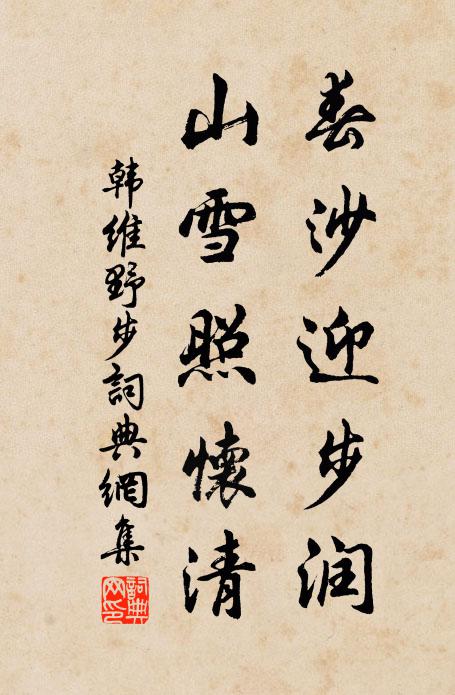 春沙迎步润
山雪照懷清
韩维野步詞典網集
詞典网印